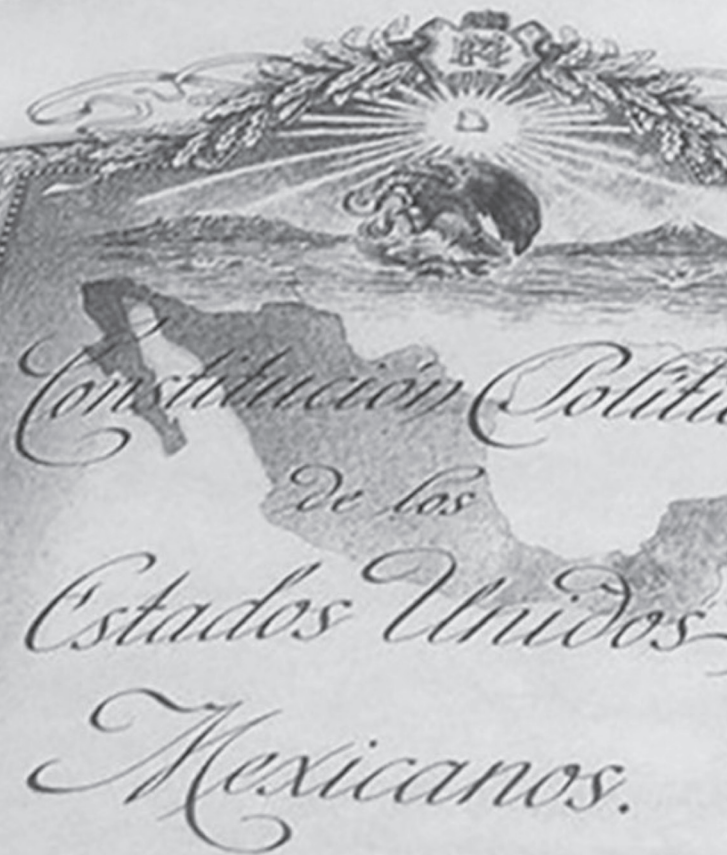 Constitución Políti
de los
Estados Unidos
Mexicanos.